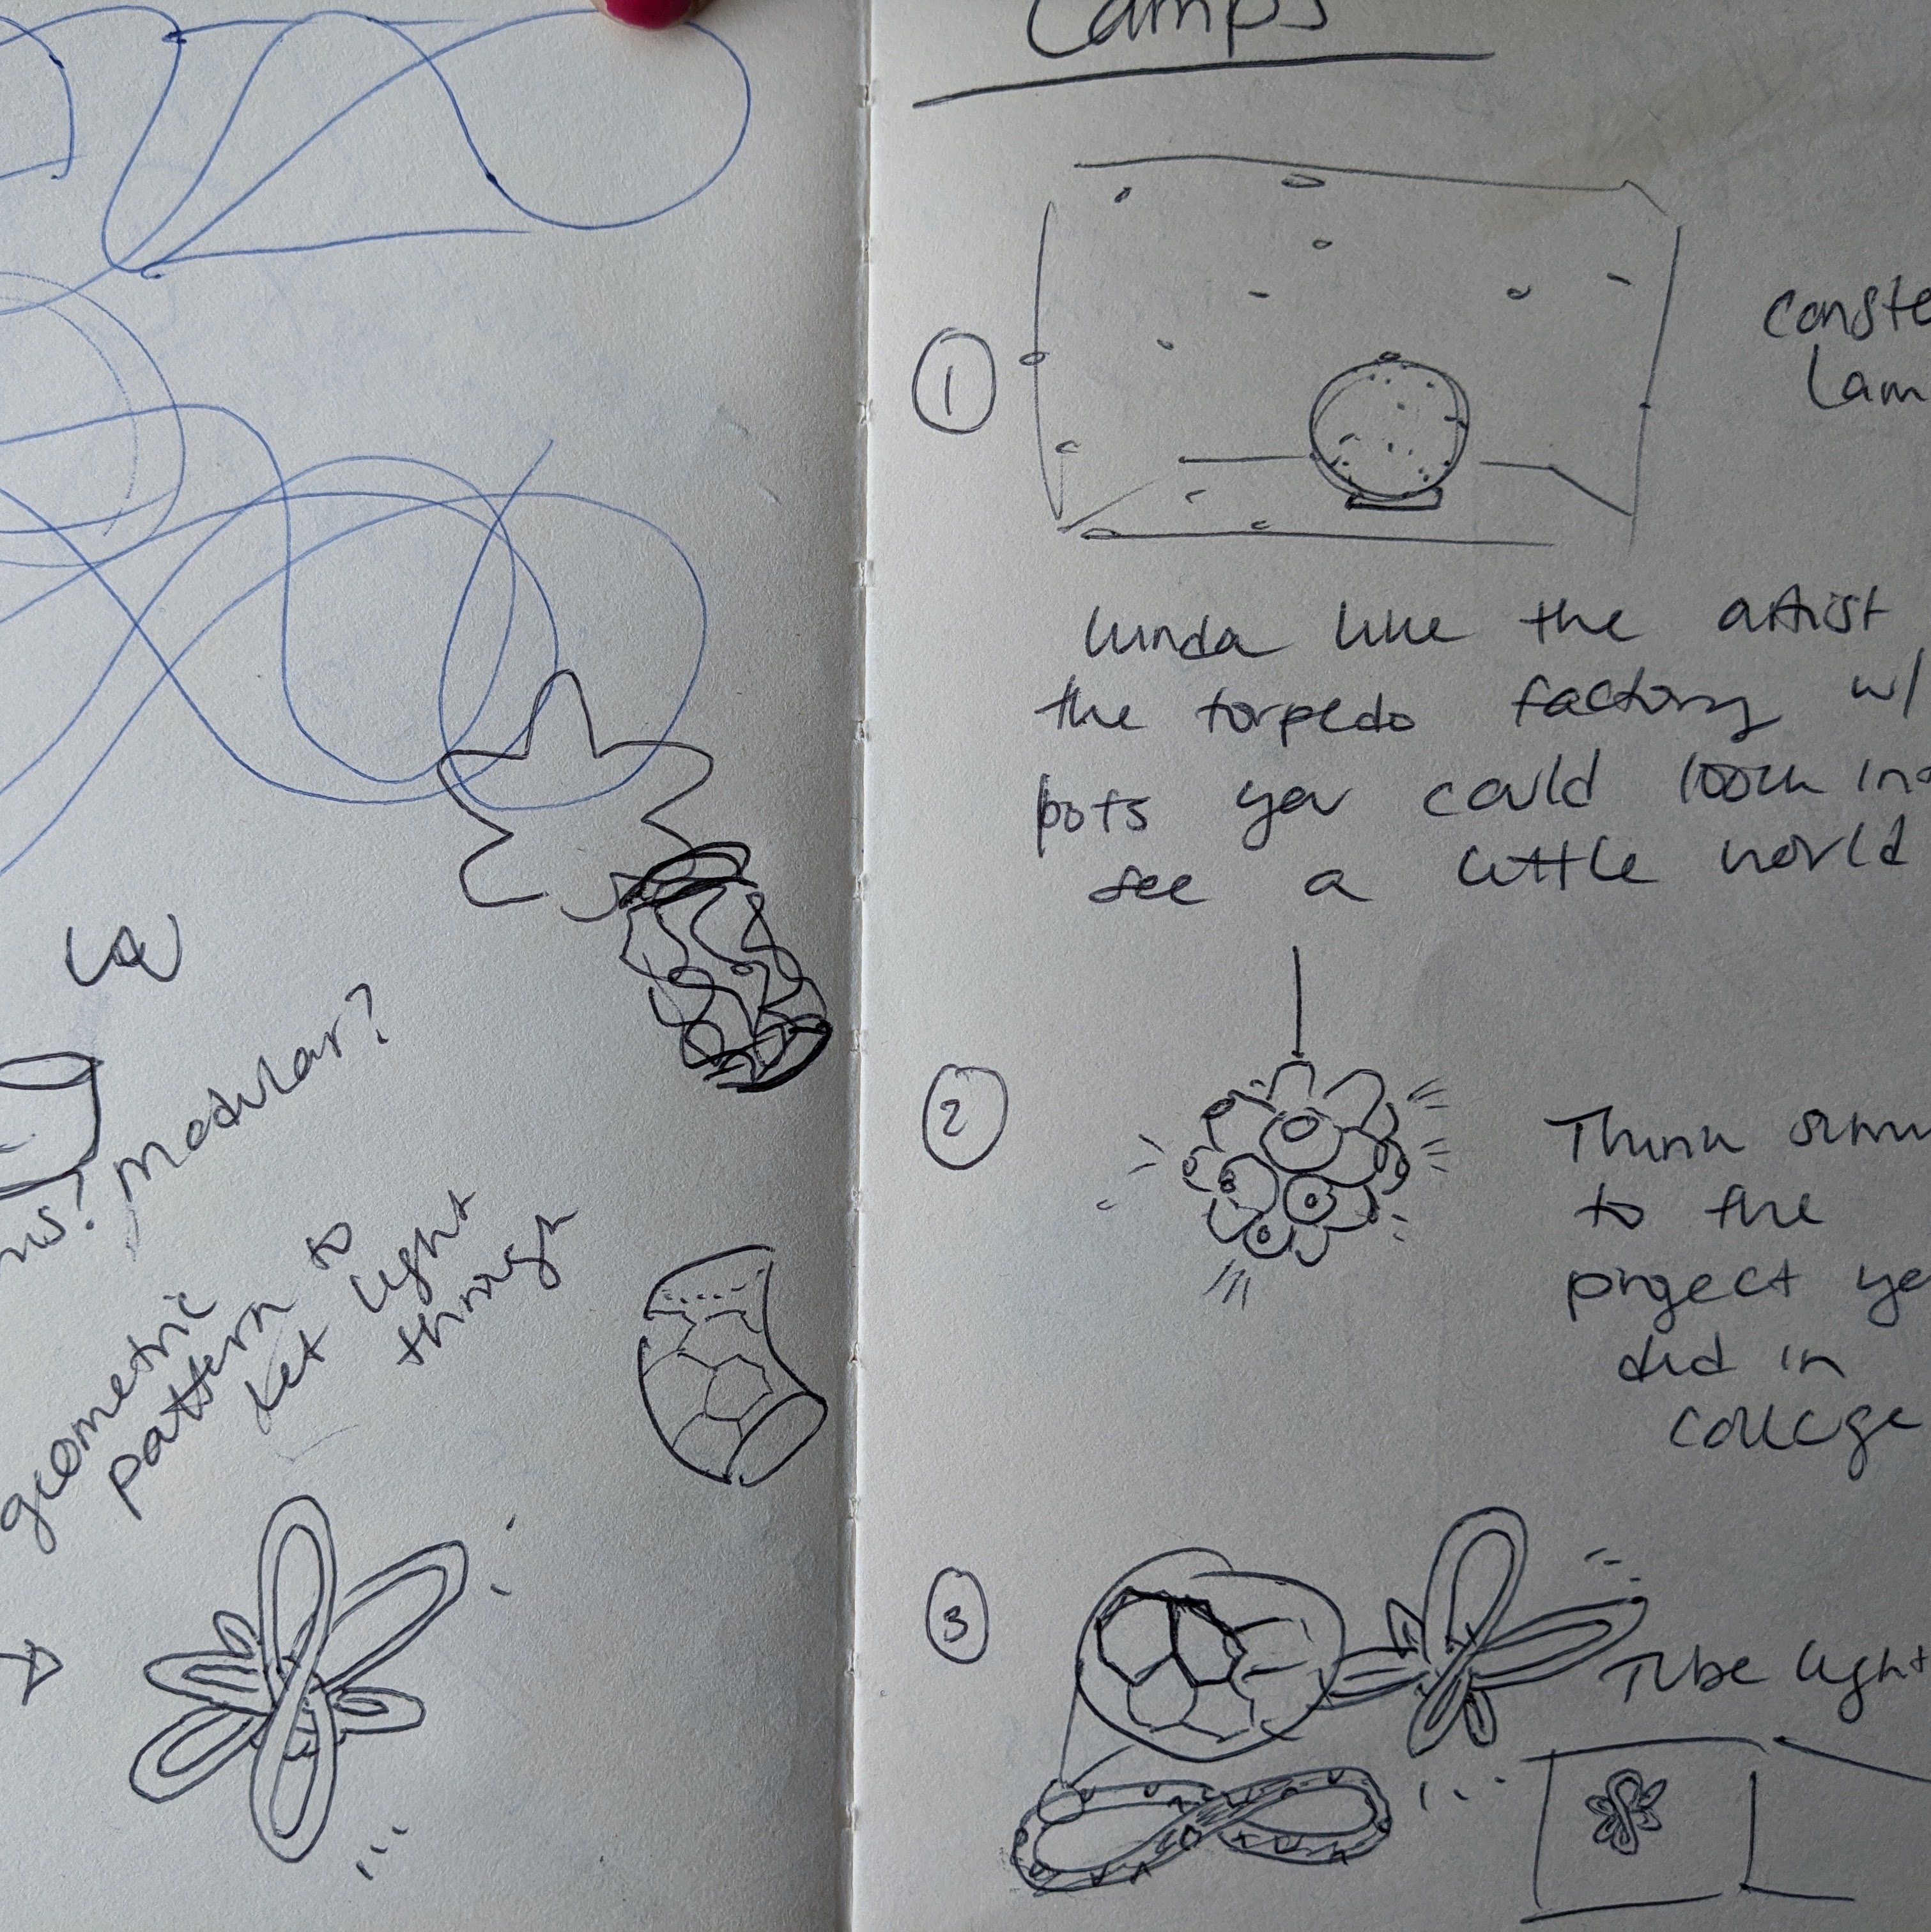 ns? modular?
geometric
pattern to
let light
through
Lamps
1
conste
Lam
kinda like the artist
the torpedo factory w/
pots you could look ins
see a little world
2
Think
to the
project
did in
college
3
Tube light